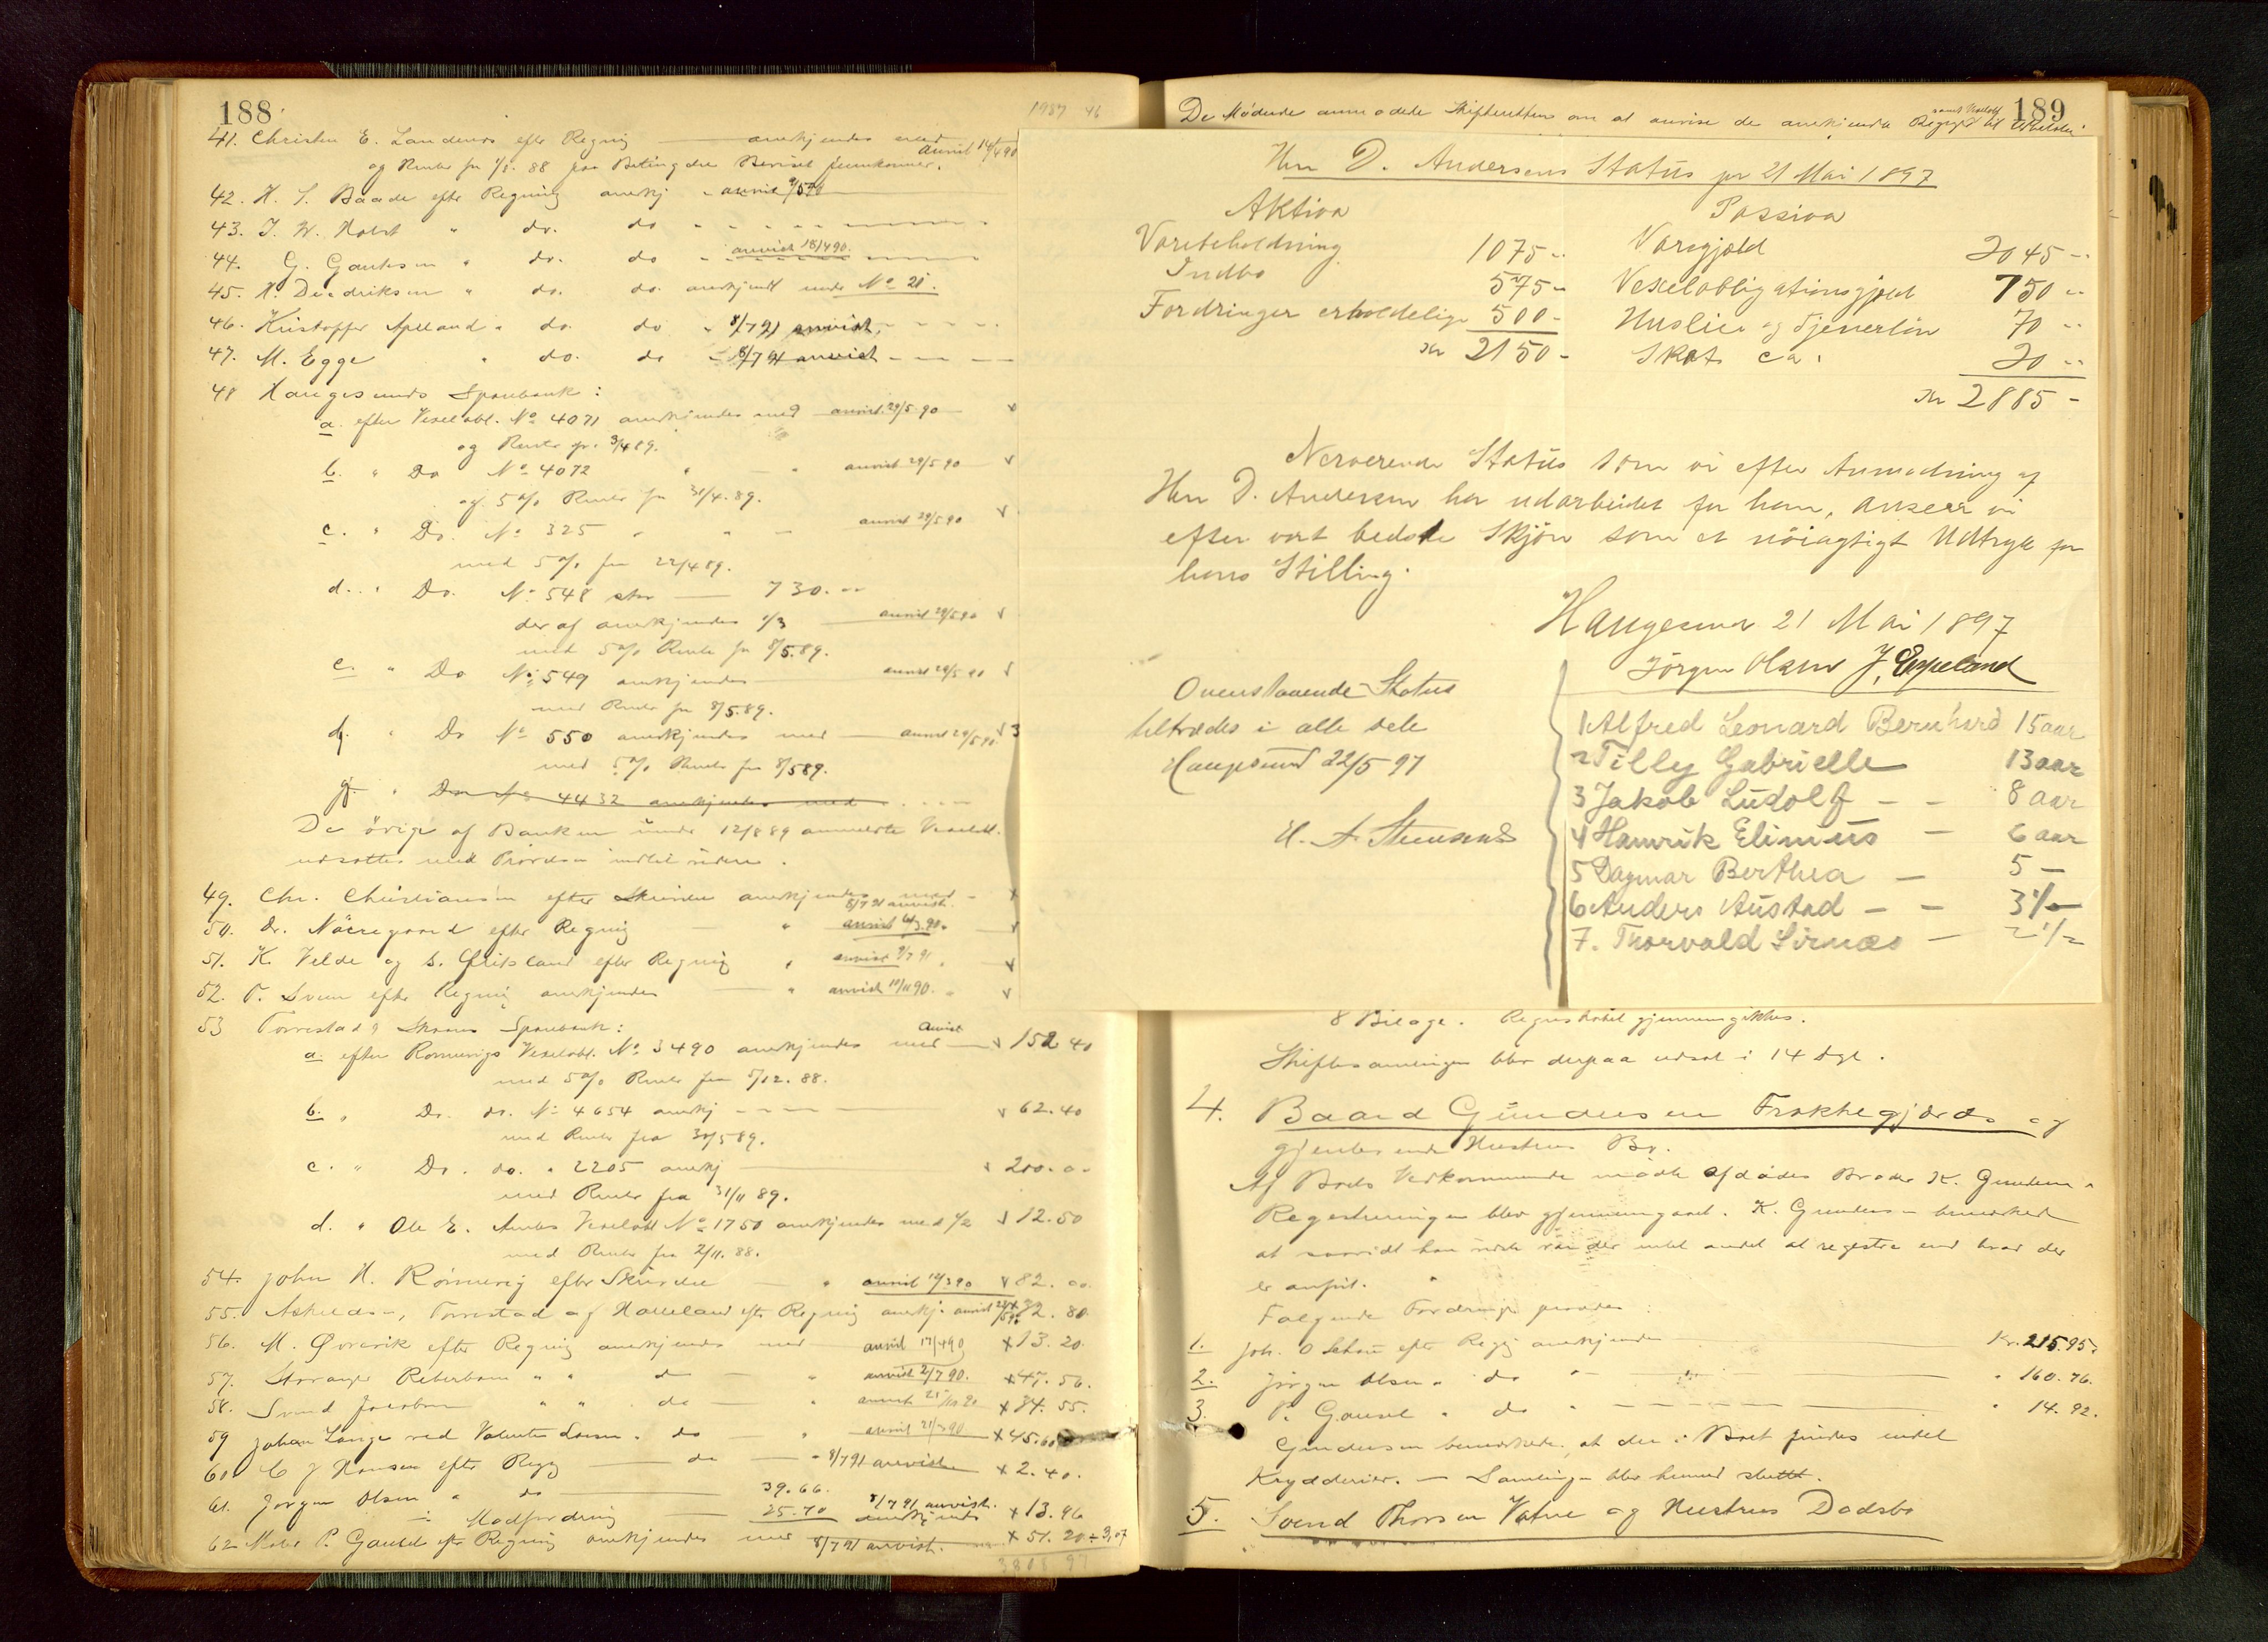 188
1987 46
41. Christen E. Landenes efter Regning — anerkjendes med
anvist 14/4 90
og Renter fra 1/5. 88 paa Betingelse Beviset fremkommer.
42. H. S. Baade efter Regning anerkj - anvist 9/5 90
43. J. W. Holst " do. do - - - -
44. G. Gautesen " do. do - anvist 18/4 90.
45. H. Diedriksen " do. do. anerkjendt under No 21.
46. Kristoffer Apeland " do. do - 8/7 91 anvist.
47. M. Egge " do. do - 8/7 91 anvist
48 Haugesunds Sparebank:
a. efter Vexelobl. No 4071 anerkjendes med anvist 29/5 90
og Renter fr. 3/4 89.
b. " Do No 4072 " - " anvist 29/5 90
og 5 % Renter fra 30/4. 89.
c. " Do. No 325 " " - anvist 29/5 90
med 5 % fra 22/4 89.
d. " Do. No 548 stor — 730. --
der af anerkjendes 1/3 — anvist 29/5 90
med 5 % Rente fra 8/5. 89.
e. " Do No 549 anerkjendes — anvist 29/5 90
med Renter fra 8/5. 89.
f. " Do No 550 anerkjendes med — anvist 29/5 90. 3
med 5 % Renter fra 8/5 89.
g. " Do No 4432 anerkjendes med
De övrige af Banken under 12/8 89 anmeldte Vexelobl.
udsattes med Prövelsen indtil videre.
49. Chr. Christiansen efter Skrivelse anerkjendes med -
8/7 91 anvist.
50. Dr. Nörregaard efter Regning — " anvist 4/3 90.
51. K. Velde og S. efter Regning " anvist 9/7 91
52. T. Sven efter Regning anerkjendes — " anvist 10/11 90.
53 Torvestad & Skaare Sparebank: anvist
a. efter Rönnevigs Vexelobl. No 3490 anerkjendes med 152 40
med 5 % Renter fra 5/12. 88.
b. " Do. do. No 4654 anerkj — 62. 40
med Renter fra 30/5 89.
c. " Do. do. " 2205 anerkj — 200. --
med Renter fra 31/11 89.
d. " Ole E. Vexelobl No 1750 anerkjendes med 1/2 12. 50
med Renter fra 2/11. 88.
54. John H. Rönnevig efter Skrivelse — " anvist 10/3 90 82. 00.
55. Askeldsen, Torvestad af Haueland efter Regning anerkj. anvist 32. 80
56. M. Qvarvik efter Regning anerkjendes med anvist 17/4 90 13. 20.
57. Stavanger Reberbane " " do — " anvist 2/7 90. 47. 56.
58. Svend Jacobsen " " do — " anvist 84. 55.
59 Johan Lange ved Valentinsen " do " anvist 21/3 90 45.60
60 C J Hansen efter Regg — do — " 8/7 91 anvist 2. 40.
61. Jørgen Olsen " do — 39. 66.
÷ Modfordring — 25. 70 8/7 91 anvist. anerkjendes 13. 96
62 P. Gausel efter Regning anerkjendes med 8/7 91 anvist. 51. 20 ÷ 3,07
3808 97
189
De Mødende anmodede Skifteretten om at anvise de anerkjendte Regnger til Udbetaling.
Herr D. Andersens Status pr 21 Mai 1897
Aktiva
Passiva
Varebeholdning 1075 -- Varegjæld 2045 --
Indbo 575 -- Vexelobligationsgjæld 750 --
Fordringer erholdelige 500 - Husleie og Tjenerløn 70 --
Kr 2150 - Skat ca: 20 --
Kr 2885 -
Nerverende Status som vi efter Anmodning af
Herr D. Andersen har udarbeidet for ham, anseer vi
efter vort bedste Skjøn som et nöiagtigt Udtryk for
hans Stilling.
Haugesund 21 Mai 1897
Jörgen Olsen J. Espeland
Ovenstaaende Status
tiltrædes i alle dele
Haugesund 22/5 97
H. A. Stensnes
1 Alfred Leonard Bernhard 15 aar
2 Tilly Gabrielle 13 aar
3 Jakob Ludolf - - 8 aar
4 Hanrik Elimius - 6 aar
5 Dagmar Berthea - 5 -
6 Anders Austad - - 3 1/2
7. Thorvald Sirnæs - 2 1/2
8 Bilage. Regnskabet gjennemgikkes.
Skiftesamlingen blev derpaa udsat i 14 Dge.
4. Baard Gundersen Frakkegjærds og
gjenlevende Hustrues Bo.
Af Boets Vedkommende mödte afdödes Broder K. Gundersen
Registreringen blev gjennemgaaet. K. Gundersen bemærkede
at saavidt han vidste var der intet andet at registre end hvad der
er anført.
Følgende Fordringer prøvedes:
1. Joh. O Schou efter Regg anerkjendes — Kr. 215. 95.
2. Jørgen Olsen " do " — " 160. 76.
3. P. Gausel " do " — " 14. 92.
Gundersen bemærkede, at der i Boet findes endel
Krydderier. — Samlingen blev hermed sluttet.
5. Svend Thorsen Vatne og Hustrues Dødsbo